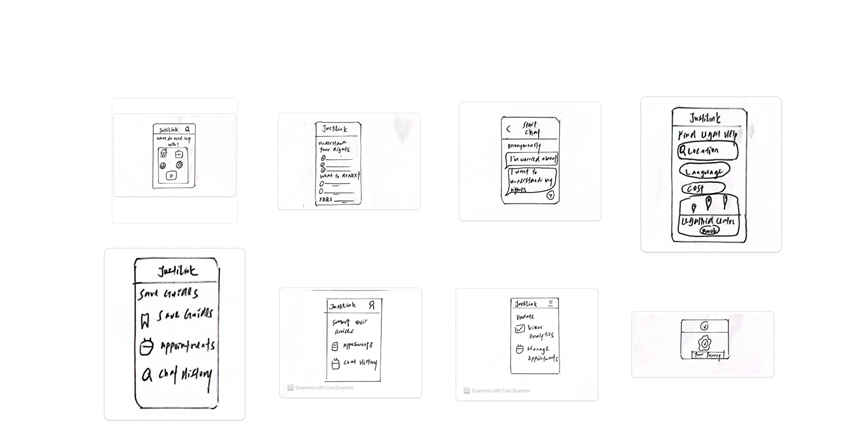 JustiLink
What do need help
with?
JustiLink
Understand
Your Rights
What to do next
FAQS
Start
Chat
Anonymously
I'm worried about
I want to
understand my
rights
JustiLink
Find Legal Help
Location
Language
Cost
Legal Aid Centre
Back
JustiLink
Save Guides
Save Guides
Appointments
Chat History
JustiLink
Guides
Appointments
Chat History
Scanned with CamScanner
JustiLink
Update
View
Analytics
Manage
Appointments
Scanned with CamScanner
Your